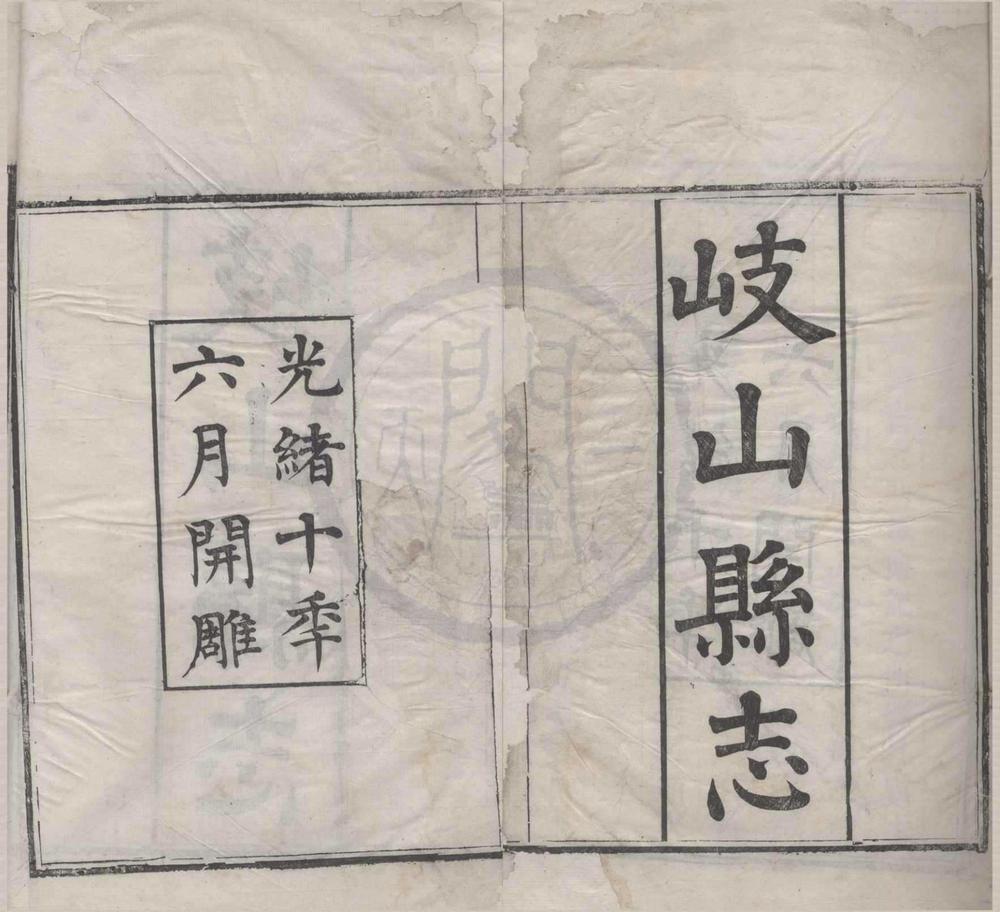 岐山縣志
光緒十年
六月開雕